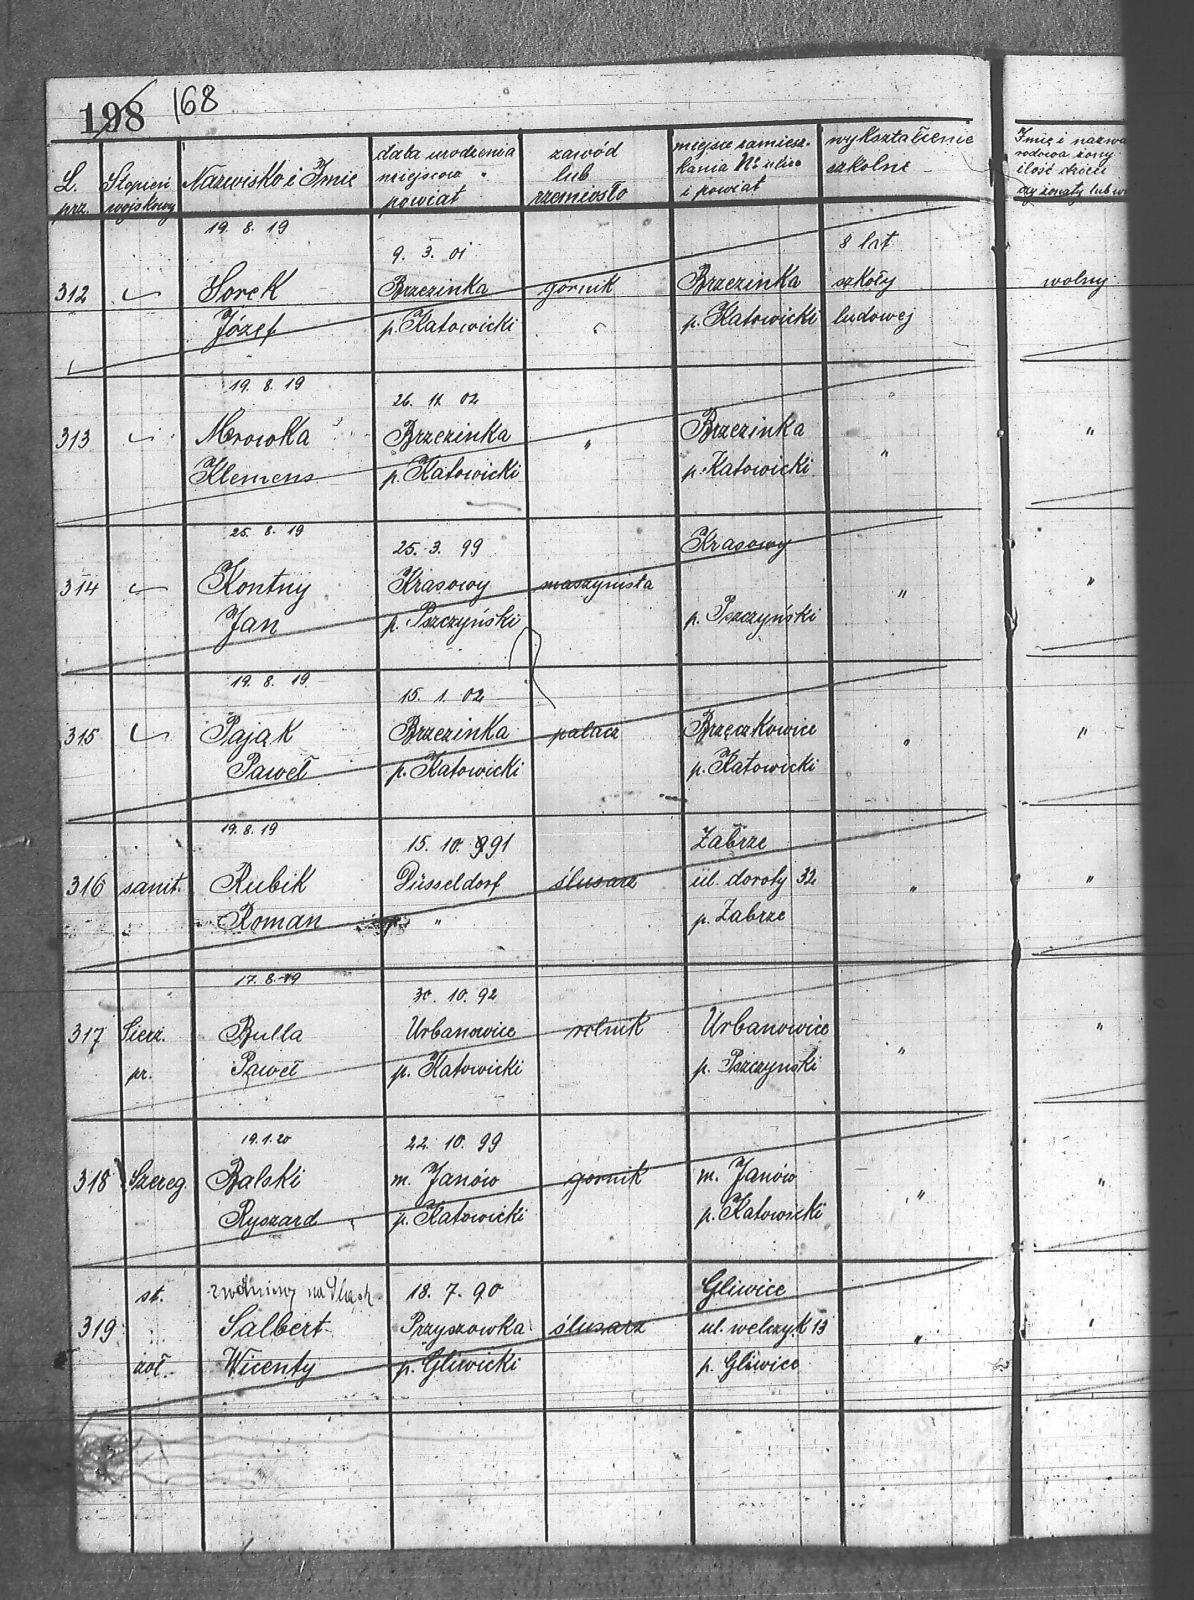 198 168
L. prz.
Stopień wojskowy
Nazwisko i Imię
data urodzenia
miejscow "
powiat
zawód
lub
rzemiosło
miejsce zamiesz-
kania № ulica
i powiat
wykształcenie
szkolne
Imię i nazwi
rodowe żony
ilość dzieci
czy żonaty lub wo
19. 8. 19
9. 3. 01
8 lat
312 Sorek Brzezinka górnik Brzezinka szkoły wolny
Józef p. Katowicki " p. Katowicki ludowej
19. 8. 19
26. 11. 02
313 " Mrowka Brzezinka " Brzezinka " "
Klemens p. Katowicki p. Katowicki
25. 8. 19
25. 3. 99 Krasowy
314 " Kontny Krasowy maszynista " "
Jan p. Pszczyński p. Pszczyński
19. 8. 19
15. 1. 02
315 " Pająk Brzezinka palacz Brzęczkowice " "
Paweł p. Katowicki p. Katowicki
19. 8. 19
15. 10. 991 Zabrze
316 sanit. Rubik Düsseldorf ślusarz ul. doroty 32 " "
Roman " p. Zabrze
17. 8. 19
30. 10. 92
317 Sierż. Bulla Urbanowice rolnik Urbanowice " "
pr. Paweł p. Katowicki p. Pszczynski
19. 1. 20 22. 10. 99
318 Szereg. Balski m. Janów górnik m. Janów " "
Ryszard p. Katowicki p. Katowicki
st. zwolniony na 18. 7. 90 Gliwice
319 Salbert Przyszowka ślusarz ul. welczyk 13 " "
żoł. Wicenty p. Gliwicki p. Gliwice